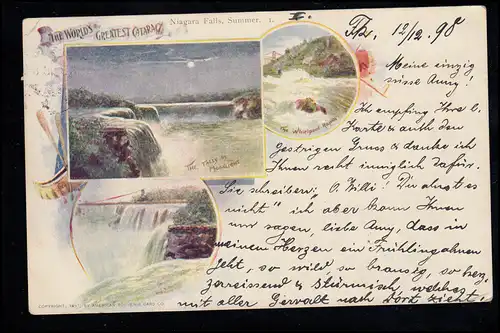 Niagara Falls, Summer. 1.
THE WORLD'S GREATEST CATARACT
12/12. 98
Meine einzig
süsse Amy!
Ich empfing Ihre l.
Karte & auch den
Gestrigen Gruss & danke ich
Ihnen recht inniglich dafür.
Sie schreiben: „O Willi! Du ahnst es
nicht" ich aber kann Ihnen
nur sagen, liebe Amy, dass in
meinem Herzen ein Frühlingsahnen
geht, so wild, so brausig, so herz-
zerreissend & stürmisch, welches
mit aller Gewalt nach Dort zieht!
THE FALLS BY MOONLIGHT
THE Whirlpool Rapids
COPYRIGHT, 1897, BY AMERICAN SOUVENIR CARD CO.